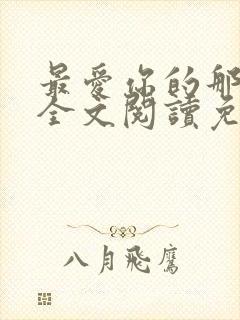 最愛你的那
全文閱讀免
八月飛鷹